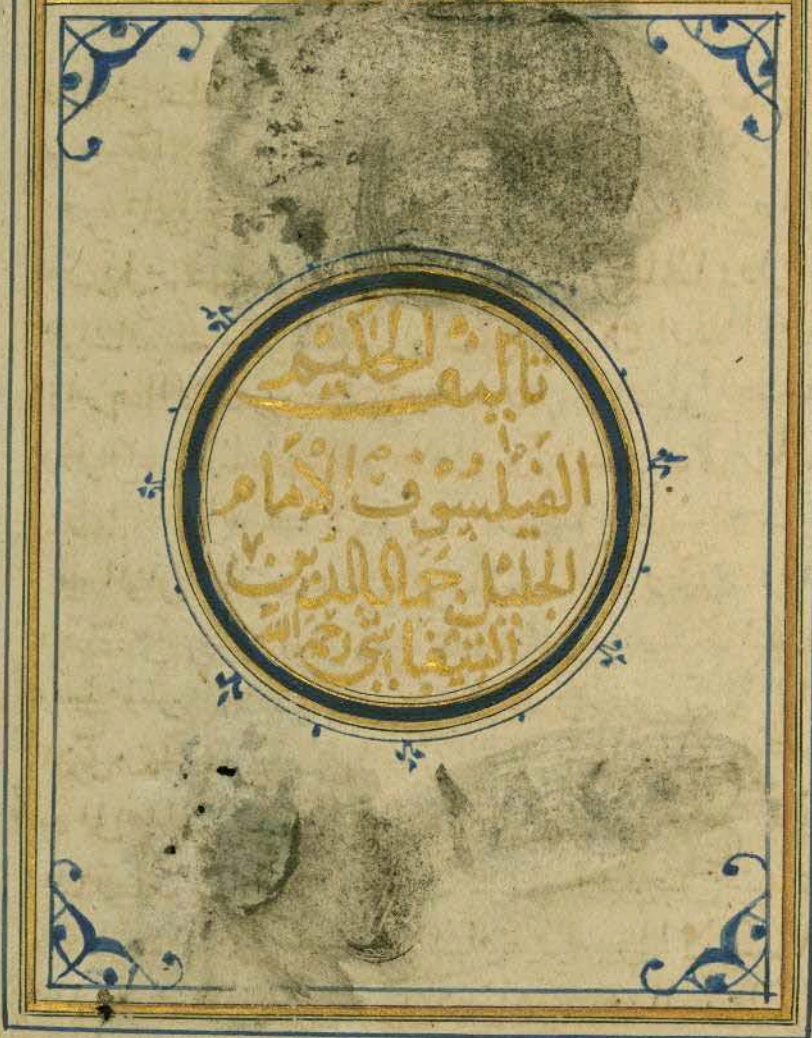 تأليف الحكيم
الفَيلسُوفْ الْامَام
الجليل جَمال الدّين
التيفاشي رحمه الله